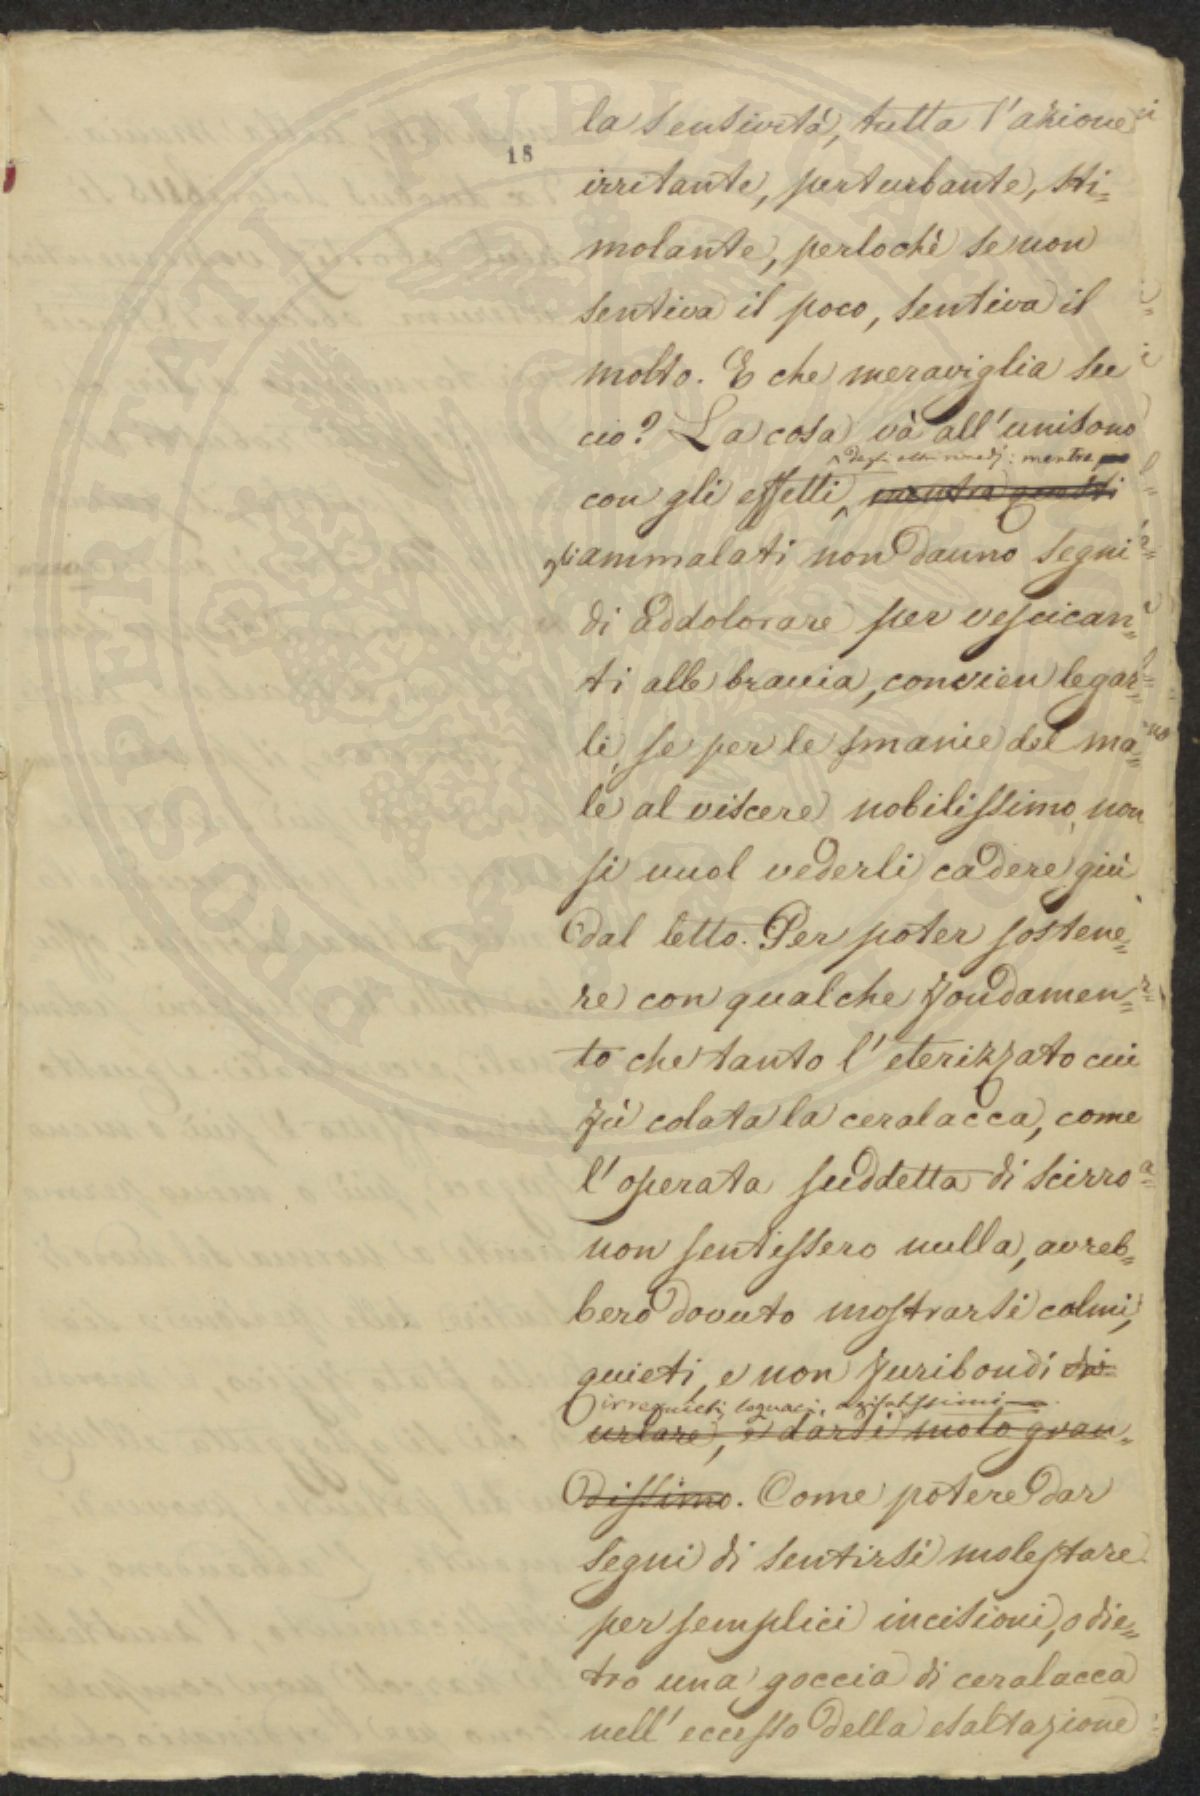 18
la sensività, tutta l'azione
irritante, perturbante, sti=
molante, perlochè se non
sentiva il poco, sentiva il
molto. E che meraviglia su
ciò? La cosa và all'unisono
degli altri rimedj: mentre
con gli effetti, mentre questi
gli ammalati non danno segni
di addolorare per vescican=
ti alle braccia, convien legar=
li, se per le smanie del ma=
le al viscere nobilissimo, non
si vuol vederli cadere giù
dal letto. Per poter sostene=
re con qualche fondamen=
to che tanto l'eterizzato cui
fù colata la ceralacca, come
l'operata suddetta di scirro
non sentissero nulla, avreb=
bero dovuto mostrarsi calmi,
quieti, e non furibondi da
irrequieti, loquaci, agitatissimi
urlare, e darsi moto gran=
dissimo. Come potere dar
segni di sentirsi molestare
per semplici incisioni, o die=
tro una goccia di ceralacca
nell'eccesso della esaltazione
PROSPERITATI PUBLICAE